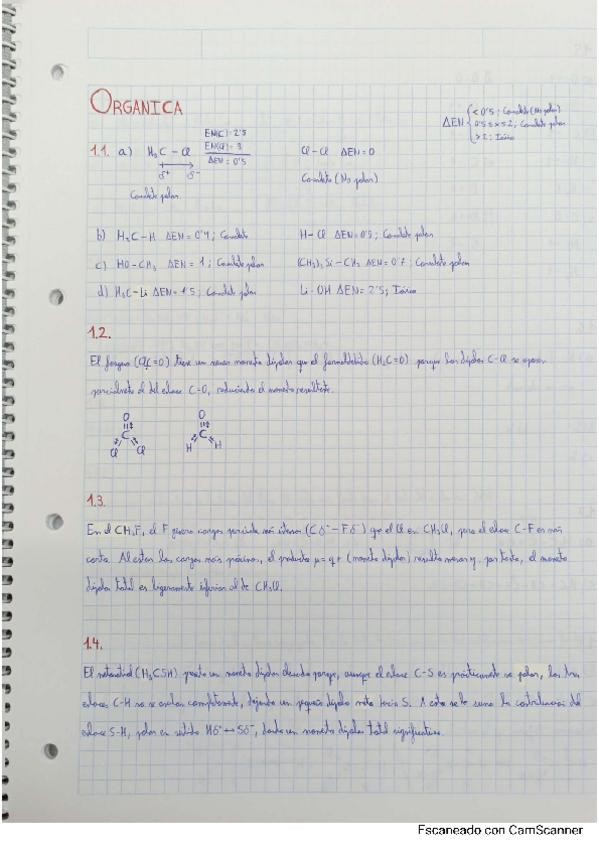 ORGANICA
ΔEN { < 0'5 : Covalente (No polar)
0'5 ≤ x ≤ 2 ; Covalente polar
> 2 ; Iónico
1.1. a) H₃C – Cl EN(C) = 2'5 Cl – Cl ΔEN = 0
EN(Cl) = 3
δ+ δ- ΔEN = 0'5 Covalente (No polar)
Covalente polar
b) H₃C – H ΔEN = 0'4 ; Covalente H – Cl ΔEN = 0'9 ; Covalente polar
c) HO – CH₃ ΔEN = 1 ; Covalente polar (CH₃)₃Si – CH₃ ΔEN = 0'7 ; Covalente polar
d) H₃C – Li ΔEN = 1'5 ; Covalente polar Li – OH ΔEN = 2'5 ; Iónico
1.2.
El fosgeno (Cl₂C=O) tiene un menor momento dipolar que el formaldehído (H₂C=O) porque los dipolos C–Cl se oponen
parcialmente al del enlace C=O, reduciendo el momento resultante.
O O
C C
Cl Cl H H
1.3.
En el CH₃F, el F posee cargas parciales más intensas (Cδ+ – Fδ-) que el Cl en CH₃Cl, pero el enlace C–F es más
corto. Al estar las cargas más próximas, el producto μ = q·r (momento dipolar) resulta menor y, por tanto, el momento
dipolar total es ligeramente inferior al de CH₃Cl.
1.4.
El metanotiol (H₃CSH) presenta un momento dipolar elevado porque, aunque el enlace C–S es prácticamente no polar, los tres
enlaces C–H no se anulan completamente, dejando un pequeño dipolo neto hacia S. A esto se le suma la contribución del
enlace S–H, polar en sentido Hδ+ → Sδ-, dando un momento dipolar total significativo.
Escaneado con CamScanner